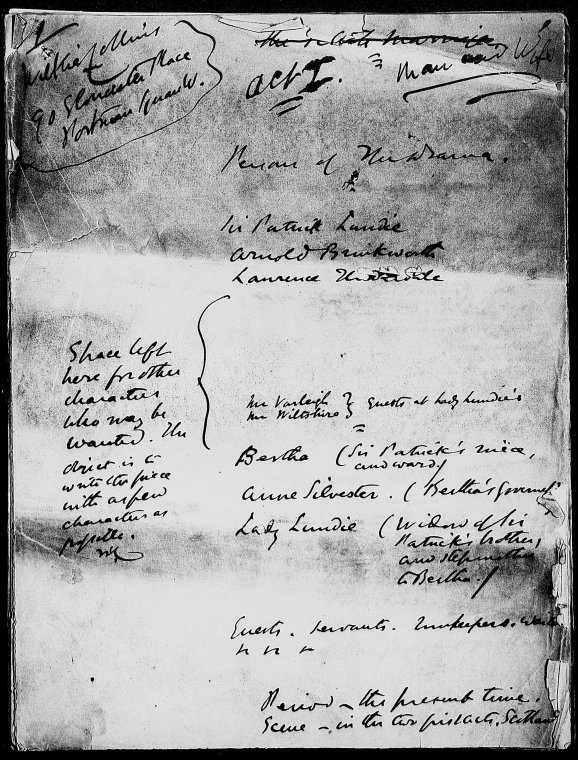 Wilkie Collins
90 Gloucester Place
Portman Square W.
Act I.
Man and Wife
Persons of the Drama.
Sir Patrick Lundie
Arnold Brinkworth
Lawrence
Space left
here for other
characters
who may be
wanted. The
object is to
write the piece
with as few
characters as
possible.
WC
Mr Varleigh
Mr Wiltshire } Guests at Lady Lundie's
Bertha (Sir Patrick's niece,
and ward)
Anne Silvester. (Bertha's governess
Lady Lundie (Widow of Sir
Patrick's brother,
and stepmother
to Bertha.)
Guests. Servants. Innkeepers.
Period – the present time.
Scene – in the two first acts, Scotland